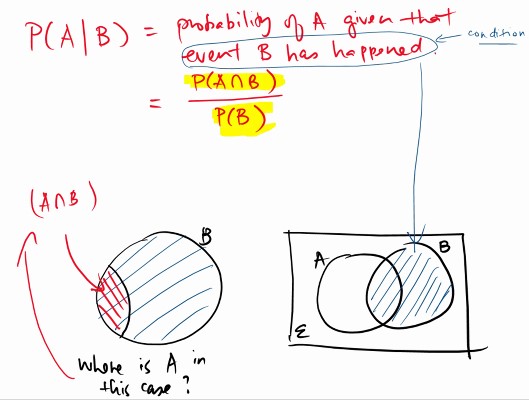 P(A|B) = probability of A given that
event B has happened.
condition
= P(A∩B)
P(B)
(A∩B)
B
A
B
ℰ
Where is A in
this case?